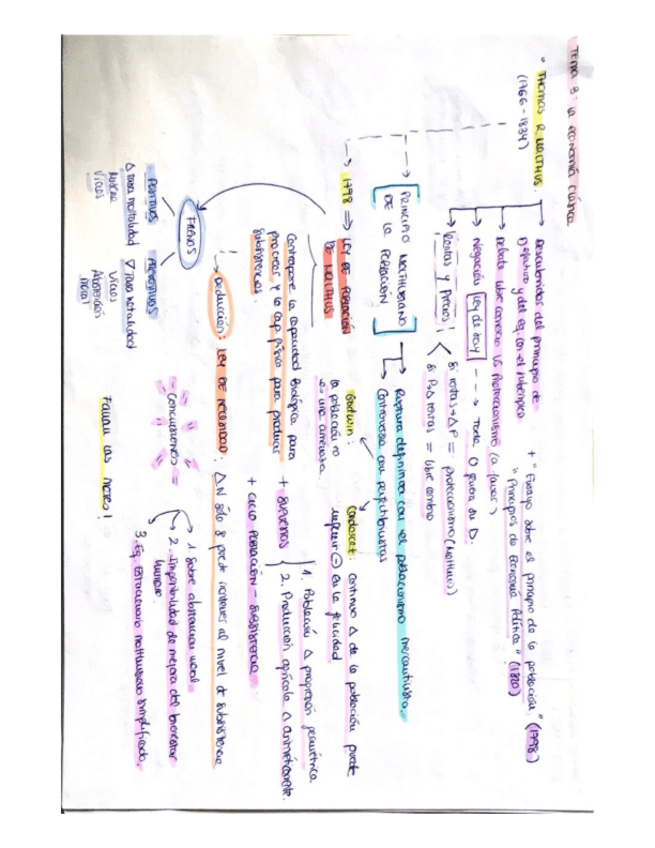 TEMA 3: la economía clásica
" THOMAS R. MALTHUS.
(1766 - 1834)
Descubridor del principio de
D efectiva y del eq. con el subempleo
+ " Ensayo sobre el principio de la población " (1798)
" Principios de Economía Política " (1820)
Debate libre comercio VS Proteccionismo (a favor)
Negación Ley de Say --> Toda O genera su D.
Rentas y Precios!
Si rentas + ΔP = proteccionismo (Malthus)
Si P▽ rentas = libre cambio
PRINCIPIO MALTHUSIANO
DE LA POBLACIÓN
Ruptura definitiva con el poblacionismo mercantilista.
Controversia con perfectibilistas
Godwin:
la población no
es una amenaza
Condorcet: continuo Δ de la población puede
influir ⊖ en la felicidad
1798 => LEY DE POBLACIÓN
DE MALTHUS
Contrapone la capacidad biológica para
procrear y la cap. física para producir
subsistencias.
+ SUPUESTOS
1. Población Δ progresión geométrica
2. Producción agrícola Δ aritméticamente.
+ CICLO POBLACIÓN - SUBSISTENCIA
Deducción: LEY DE NECESIDAD: ΔN sólo si puede incluirse al nivel de subsistencia
FRENOS
POSITIVOS
Δ tasa mortalidad
Vicios
PREVENTIVOS
▽ Tasa natalidad
Vicios
Abstención
moral
- CONCLUSIONES =
1. Sobre abstracción moral
2. Imposibilidad de mejora del bienestar
humano.
3. Eq. Estacionario malthusiano simplificado.
FALTAN LAS NOTAS!